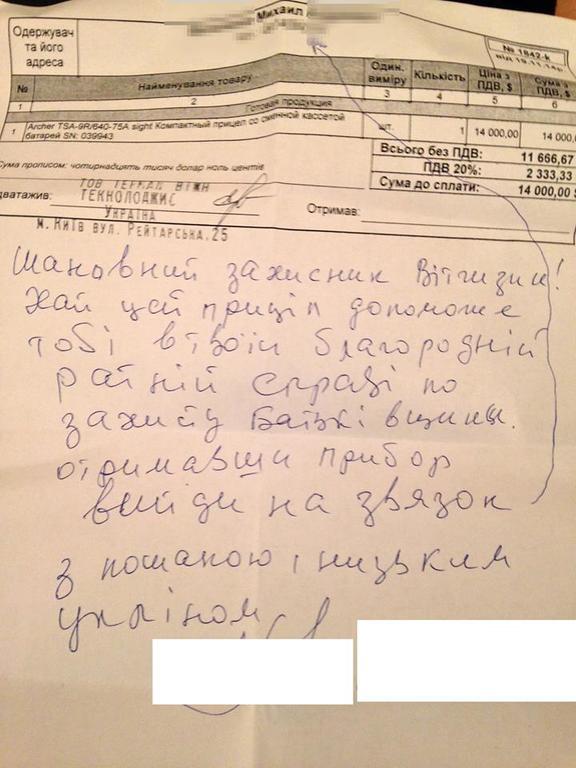 Михаил
Одержувач
та його
адреса
№ 1842-k
від 19.11.14р.
№ Найменування товару Один. виміру Кількість Ціна з ПДВ, $ Сума з ПДВ, $
1 2 3 4 5 6
Готовая продукция
1 Archer TSA-9R/640-75A sight Компактный прицел со сменной кассетой батарей SN: 039943 шт. 1 14 000,00 14 000,
Всього без ПДВ: 11 666,67
ПДВ 20%: 2 333,33
Сума до сплати: 14 000,00 $
Сума прописом: чотирнадцять тисяч долар ноль центів
дватажив:
ТОВ ТЕРКАЛ ВІЖН
ТЕКНОЛОДЖИС
Україна
м. Київ вул. Рейтарська, 25
Отримав:
Шановний захисник Вітчизни!
Хай цей приціл допоможе
тобі в твоїй благородній
ратній справі по
захисту Батьківщини.
отримавши прибор
вийди на звязок
з пошаною і низьким
укліном